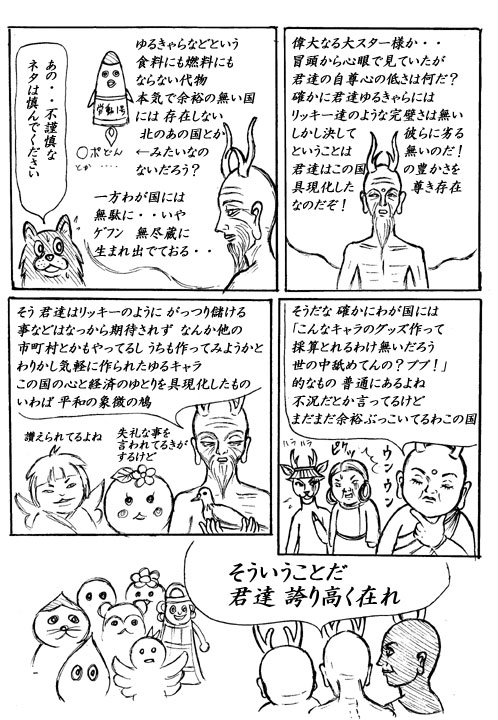 偉大なる大スター様か・・
冒頭から心眼で見ていたが
君達の自尊心の低さは何だ？
確かに君達ゆるきゃらには
リッキー達のような完璧さは無い
しかし決して　彼らに劣る
ということは　無いのだ！
君達はこの国　の豊かさを
具現化した　尊き存在
なのだぞ！
ゆるきゃらなどという
食料にも燃料にも
ならない代物
本気で余裕の無い国
には 存在しない
北のあの国とか
←みたいなの
ないだろう？
労動1号
〇ポどん
とか・・・・
一方わが国には
無駄に・・いや
ゲフン　無尽蔵に
生まれ出でておる・・
あの・・不謹慎な
ネタは慎んでください
そうだな 確かにわが国には
「こんなキャラのグッズ作って
採算とれるわけ無いだろう
世の中舐めてんの？ププ！」
的なもの 普通にあるよね
不況だとか言ってるけど
まだまだ余裕ぶっこいてるわこの国
ウンウン
ピクッ
ハラハラ
そう 君達はリッキーのように がっつり儲ける
事などはなっから期待されず なんか他の
市町村とかもやってるし うちも作ってみようかと
わりかし気軽に作られたゆるキャラ
この国の心と経済のゆとりを具現化したもの
いわば 平和の象徴の鳩
失礼な事を
言われてるきが
するけど
讃えられてるよね
そういうことだ
君達 誇り高く在れ